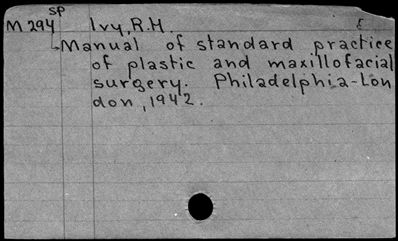 SP
M 294 Ivy, R.H. E
Manual of standard practice
of plastic and maxillofacial
surgery. Philadelphia-Lon
don, 1942.